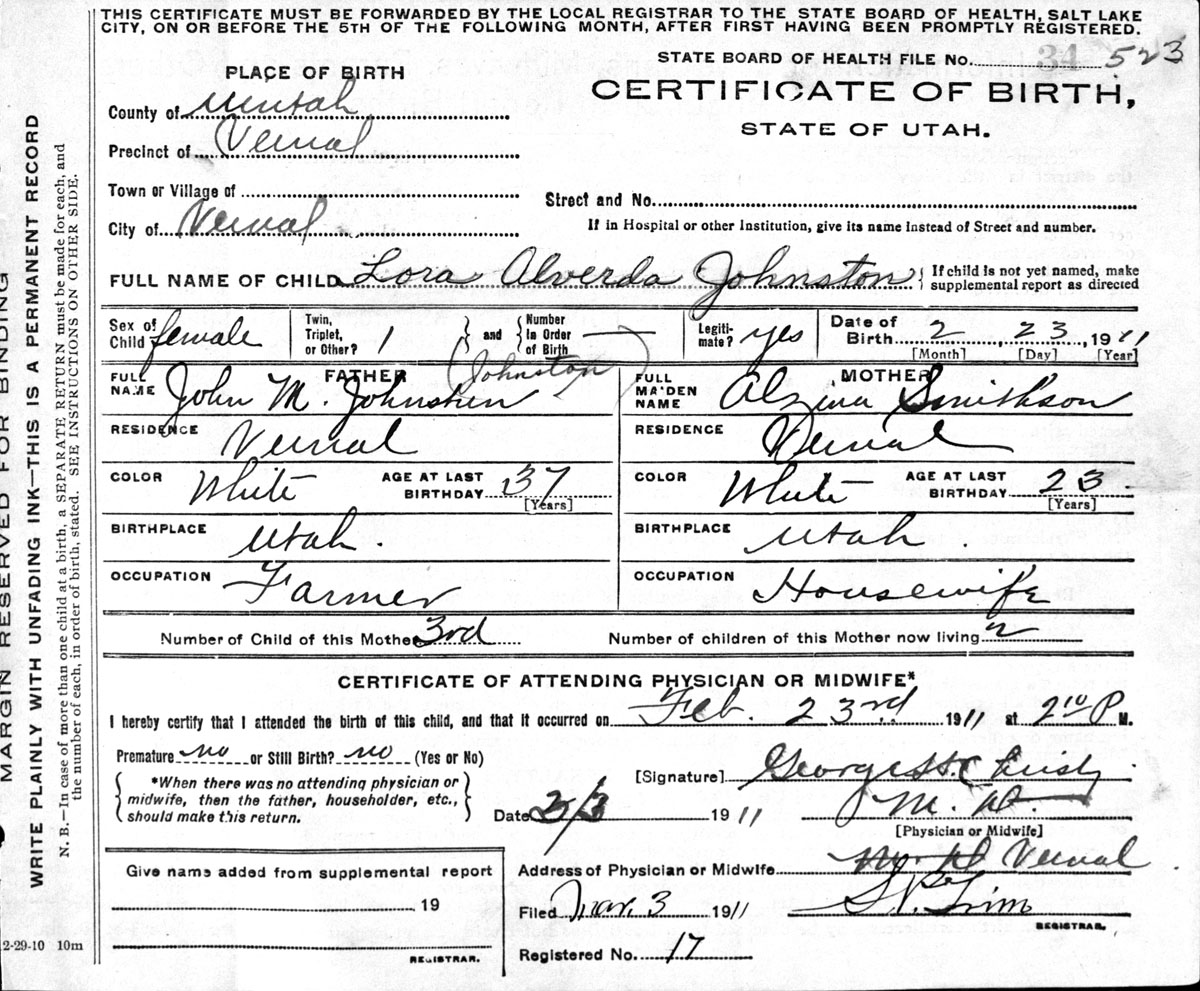 THIS CERTIFICATE MUST BE FORWARDED BY THE LOCAL REGISTRAR TO THE STATE BOARD OF HEALTH, SALT LAKE
CITY, ON OR BEFORE THE 5TH OF THE FOLLOWING MONTH, AFTER FIRST HAVING BEEN PROMPTLY REGISTERED.
STATE BOARD OF HEALTH FILE No. 34 523
PLACE OF BIRTH
CERTIFICATE OF BIRTH,
STATE OF UTAH.
County of Uintah
Precinct of Vernal
Town or Village of
Street and No.
City of Vernal
If in Hospital or other Institution, give its name instead of Street and number.
FULL NAME OF CHILD Lora Alverda Johnston { If child is not yet named, make
supplemental report as directed
Sex of Child female Twin, Triplet, or Other? 1 and Number in Order of Birth — Legiti- mate? yes Date of Birth 2, 23, 1911
[Month] [Day] [Year]
FATHER (Johnston) MOTHER
FULL NAME John M. Johnsten FULL MAIDEN NAME Alzina Smithson
RESIDENCE Vernal RESIDENCE Vernal
COLOR White AGE AT LAST BIRTHDAY 37 [Years] COLOR White AGE AT LAST BIRTHDAY 23 [Years]
BIRTHPLACE Utah. BIRTHPLACE Utah.
OCCUPATION Farmer OCCUPATION Housewife
Number of Child of this Mother 3rd Number of children of this Mother now living 2
CERTIFICATE OF ATTENDING PHYSICIAN OR MIDWIFE*
I hereby certify that I attended the birth of this child, and that it occurred on Feb. 23rd 1911 at 2 10 P M.
Premature no or Still Birth? no (Yes or No)
*When there was no attending physician or
midwife, then the father, householder, etc.,
should make this return.
[Signature] George H. Christy
Date 2/3 1911 M. D.
[Physician or Midwife]
Address of Physician or Midwife Vernal
Give name added from supplemental report
19
REGISTRAR.
Filed Mar. 3 1911
REGISTRAR.
Registered No. 17
2-29-10 10m
MARGIN RESERVED FOR BINDING
WRITE PLAINLY WITH UNFADING INK—THIS IS A PERMANENT RECORD
N. B.—In case of more than one child at a birth, a SEPARATE RETURN must be made for each, and
the number of each, in order of birth, stated. SEE INSTRUCTIONS ON OTHER SIDE.